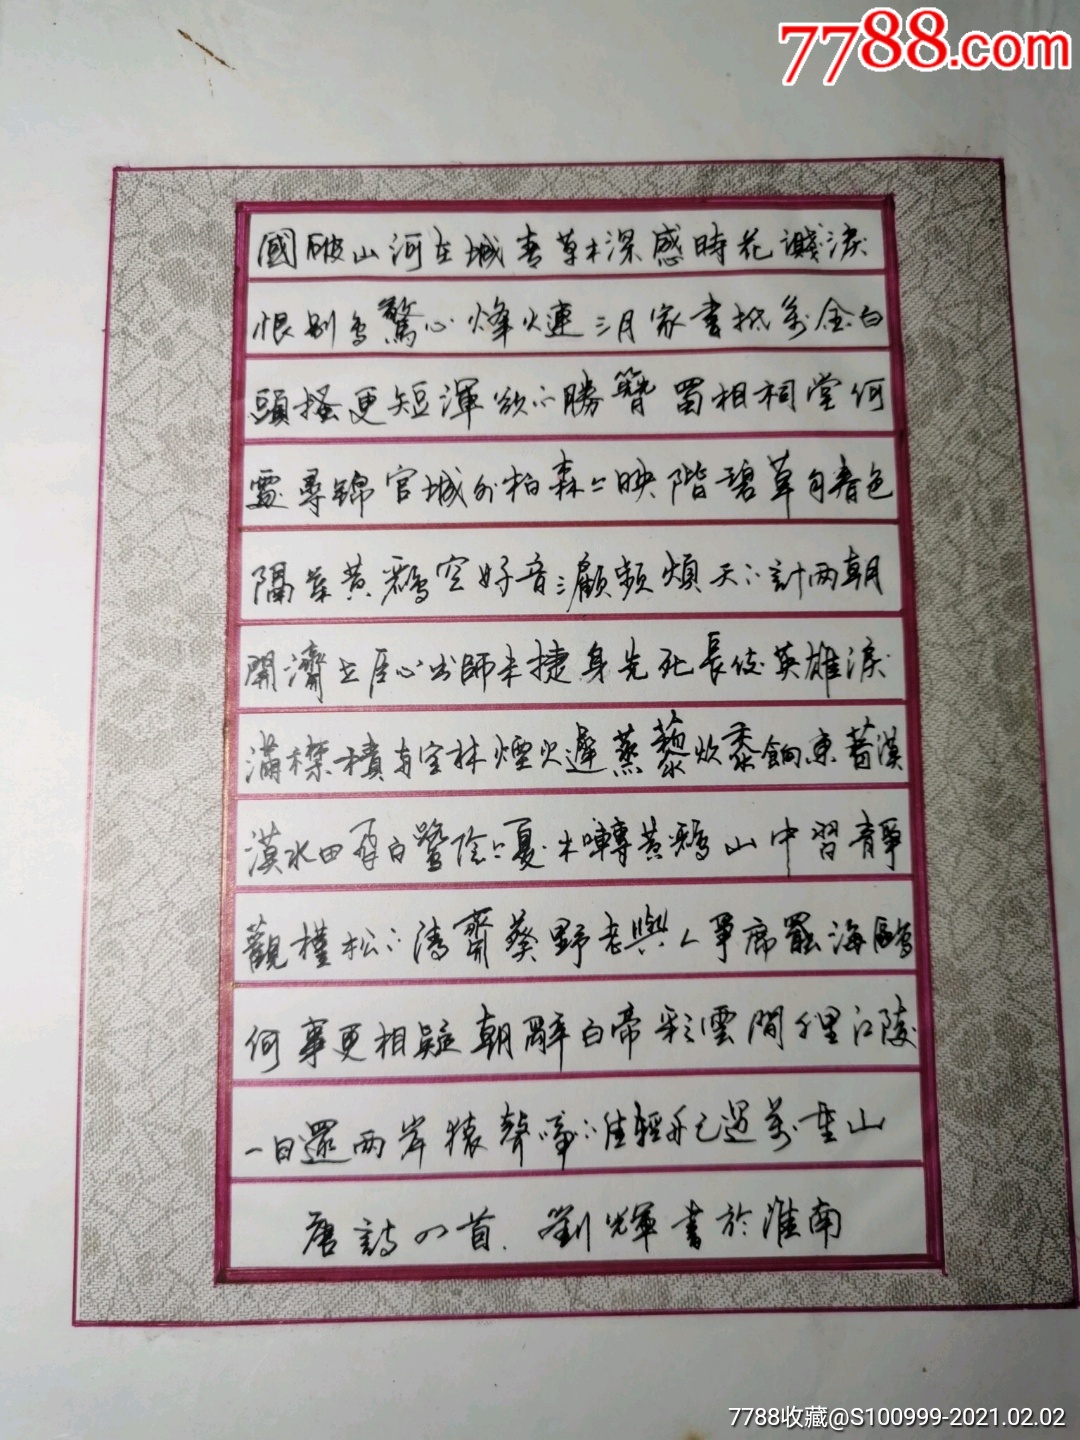 7788.com
國破山河在城春草木深感時花濺淚
恨別鳥驚心烽火連三月家書抵萬金白
頭搔更短渾欲不勝簪蜀相祠堂何
處尋錦官城外柏森々映階碧草自春色
隔葉黃鸝空好音三顧頻煩天下計兩朝
開濟老臣心出師未捷身先死長使英雄淚
滿襟積雨空林煙火遲蒸藜炊黍餉東菑漠
漠水田飛白鷺陰々夏木囀黃鸝山中習靜
觀槿松下清齋葵野老與人爭席罷海鷗
何事更相疑朝辭白帝彩雲間千里江陵
一日還兩岸猿聲啼不住輕舟已過萬重山
唐詩四首.劉輝書於淮南
7788收藏@S100999-2021.02.02